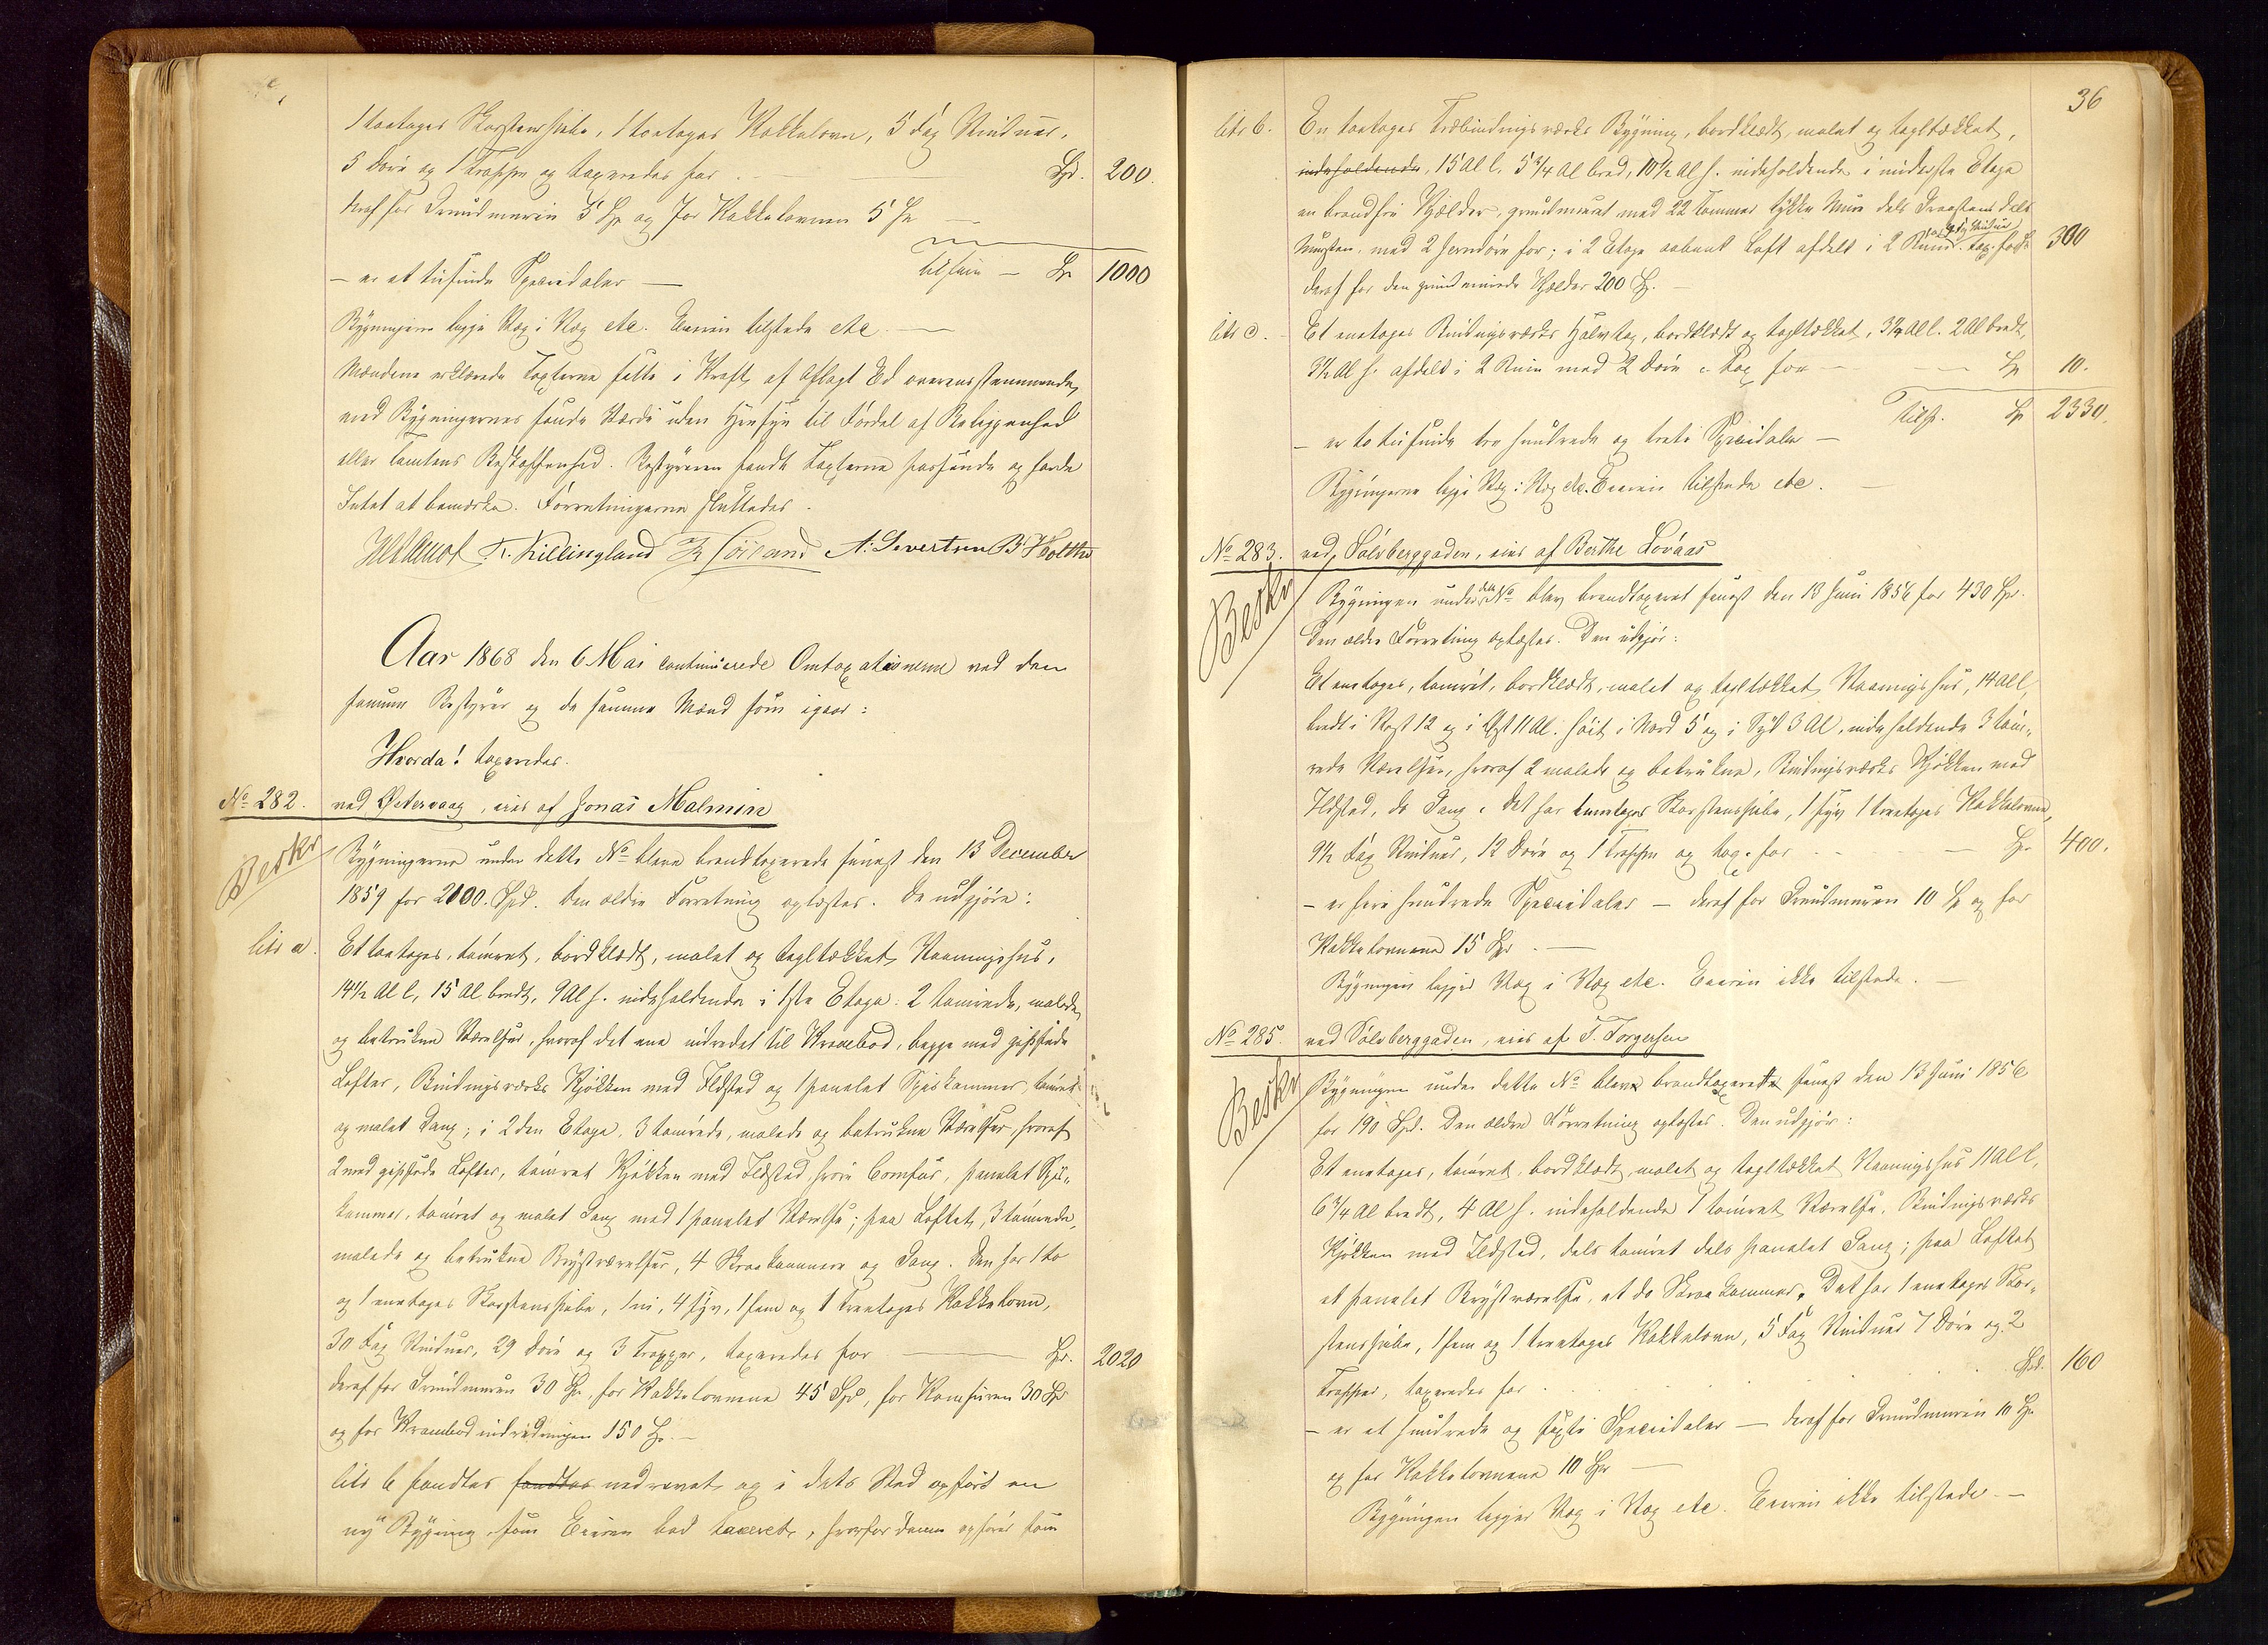 1 toetages Skorstenspibe, 1 toetages Kakkelovn, 5 Fag Vinduer,
5 Døre og 1 Trappe og taxeredes for Spd. 200.
deraf for Grundmuren 5 Sp og for Kakkelovnen 5 Sp
tilsam — Sp 1000
– er et tusinde Speciedaler —
Bygningerne ligge Væg i Væg etc. Eieren tilstede etc. —
Mændene erklærede Taxterne satte i Kraft af aflagt Ed overensstemmende
med Bygningernes sande Værdi uden Hensyn til Fordel af Beliggenhed
eller Tomtens Beskaffenhed. Bestyreren fandt Taxterne passende og havde
Intet at bemærke. Forretningerne sluttedes.
T. Killingland A. Sivertsen B. Holthe
Aar 1868 den 6 Mai continuerede Omtaxationerne ved den
samme Bestyrer og de samme Mænd som igaar:
Hvorda! taxeredes.
No 282. ved Østervaag, eies af Jonas Malmin
Beskr
Bygningerne under dette No bleve brandtaxerede senest den 13 December
1859 for 2100 Spd. Den ældre Forretning oplæstes. De udgjøre:
litr a. Et toetages, tømret, bordklædt, malet og tagltækket Vaaningshus,
14½ Al l, 15 Al bredt, 9 Al h. indeholdende i 1ste Etage: 2 tømrede, malede
og betrukne Værelser, hvoraf det ene indredet til Krambod, begge med gipsede
Lofter, Bindingsværks Kjøkken med Ildsted og 1 panelet Spiskammer, tømret
og malet Gang; i 2den Etage, 3 tømrede, malede og betrukne Værelser, hvoraf
2 med gipsede Lofter, tømret Kjøkken med Ildsted, hvori Comfur, panelet Spis-
kammer, tømret og malet Gang med 1 panelet Værelse; paa Loftet, 3 tømrede,
malede og betrukne Brystværelser, 4 Skraakammere og Gang. Den har 1 to
og 1 enetages Skorstenspibe, 1 ni, 4 syv, 1 fem og 1 treetages Kakkelovn,
30 Fag Vinduer, 29 Døre og 3 Trapper, taxeredes for Sp. 2020
deraf for Grundmuren 30 Sp, for Kakkelovnene 45 Spd, for Komfuren 30 Sp
og for Krambodindredningen 150 Sp. —
litr b fandtes fandtes nedrevet og i dets Sted opført en
ny Bygning som Eieren bad taxeret, hvorfor denne opføres som
36
litr b. En toetages Træbindingsværks Bygning, bordklædt, malet og tagltækket,
indeholdende, 15 Al l. 5¾ Al bred, 10½ Al h. indeholdende i underste Etage
en brandfri Kjælder, grundmuret med 22 Tommer tykke Mure dels Graasten dels
Mursten, med 2 Jerndøre for; i 2 Etage aabent Loft afdelt i 2 Rum tax. for Sp 300
deraf for den grundmurede Kjælder 200 Sp. —
litr c. Et enetages Bindingsværks Halvtag, bordklædt og tagltækket, 3¾ Al l. 2 Al bredt,
3½ Al h. afdelt i 2 Rum med 2 Døre. Tax for — Sp 10.
Tilss. Sp 2330.
– er to tusinde tre hundrede og treti Speciedaler —
Bygningerne ligge Væg i Væg etc. Eieren tilstede etc. —
No 283. ved Sølvberggaden, eies af Berthe Lovaas
Beskr
Bygningen under dette No blev brandtaxeret senest den 13 Juni 1856 for 430 Sp.
Den ældre Forretning oplæstes. Den udgjør:
Et enetages, tømret, bordklædt, malet og tagltækket Vaaningshus, 14 Al l,
bredt i Vest 12 og i Øst 11 Al. høit i Nord 5 og i Syd 3 Al, indeholdende 3 tøm-
rede Værelser, hvoraf 2 malede og betrukne, Bindingsværks Kjøkken med
Ildsted, do Gang. Det har 1 enetages Skorstenspibe, 1 syv 1 treetages Kakkelovne,
9½ Fag Vinduer, 12 Døre og 1 Trappe og tax. for Sp. 400.
– er fire hundrede Speciedaler — deraf for Grundmuren 10 Sp og for
Kakkelovnene 15 Sp. —
Bygningen ligger Væg i Væg etc. Eieren ikke tilstede. —
No 285. ved Sølvberggaden, eies af T. Torgersen
Beskr
Bygningen under dette No blev brandtaxeret senest den 13 Juni 1856
for 190 Spd. Den ældre Forretning oplæstes. Den udgjør:
Et enetages, tømret, bordklædt, malet og tagltækket Vaaningshus 11 Al l,
6¾ Al bredt, 4 Al h. indeholdende 1 tømret Værelse, Bindingsværks
Kjøkken med Ildsted, dels tømret dels panelet Gang; paa Loftet
et panelet Brystværelse, et do Skraakammer. Det har 1 enetages Skor-
stenspibe, 1 fem og 1 treetages Kakkelovn, 5 Fag Vinduer 7 Døre og 2
Trapper, taxeredes for Spd. 160
– er et hundrede og sexti Speciedaler — deraf for Grundmuren 10 Sp
og for Kakkelovnene 10 Sp —
Bygningen ligger Væg i Væg etc. Eieren ikke tilstede. —